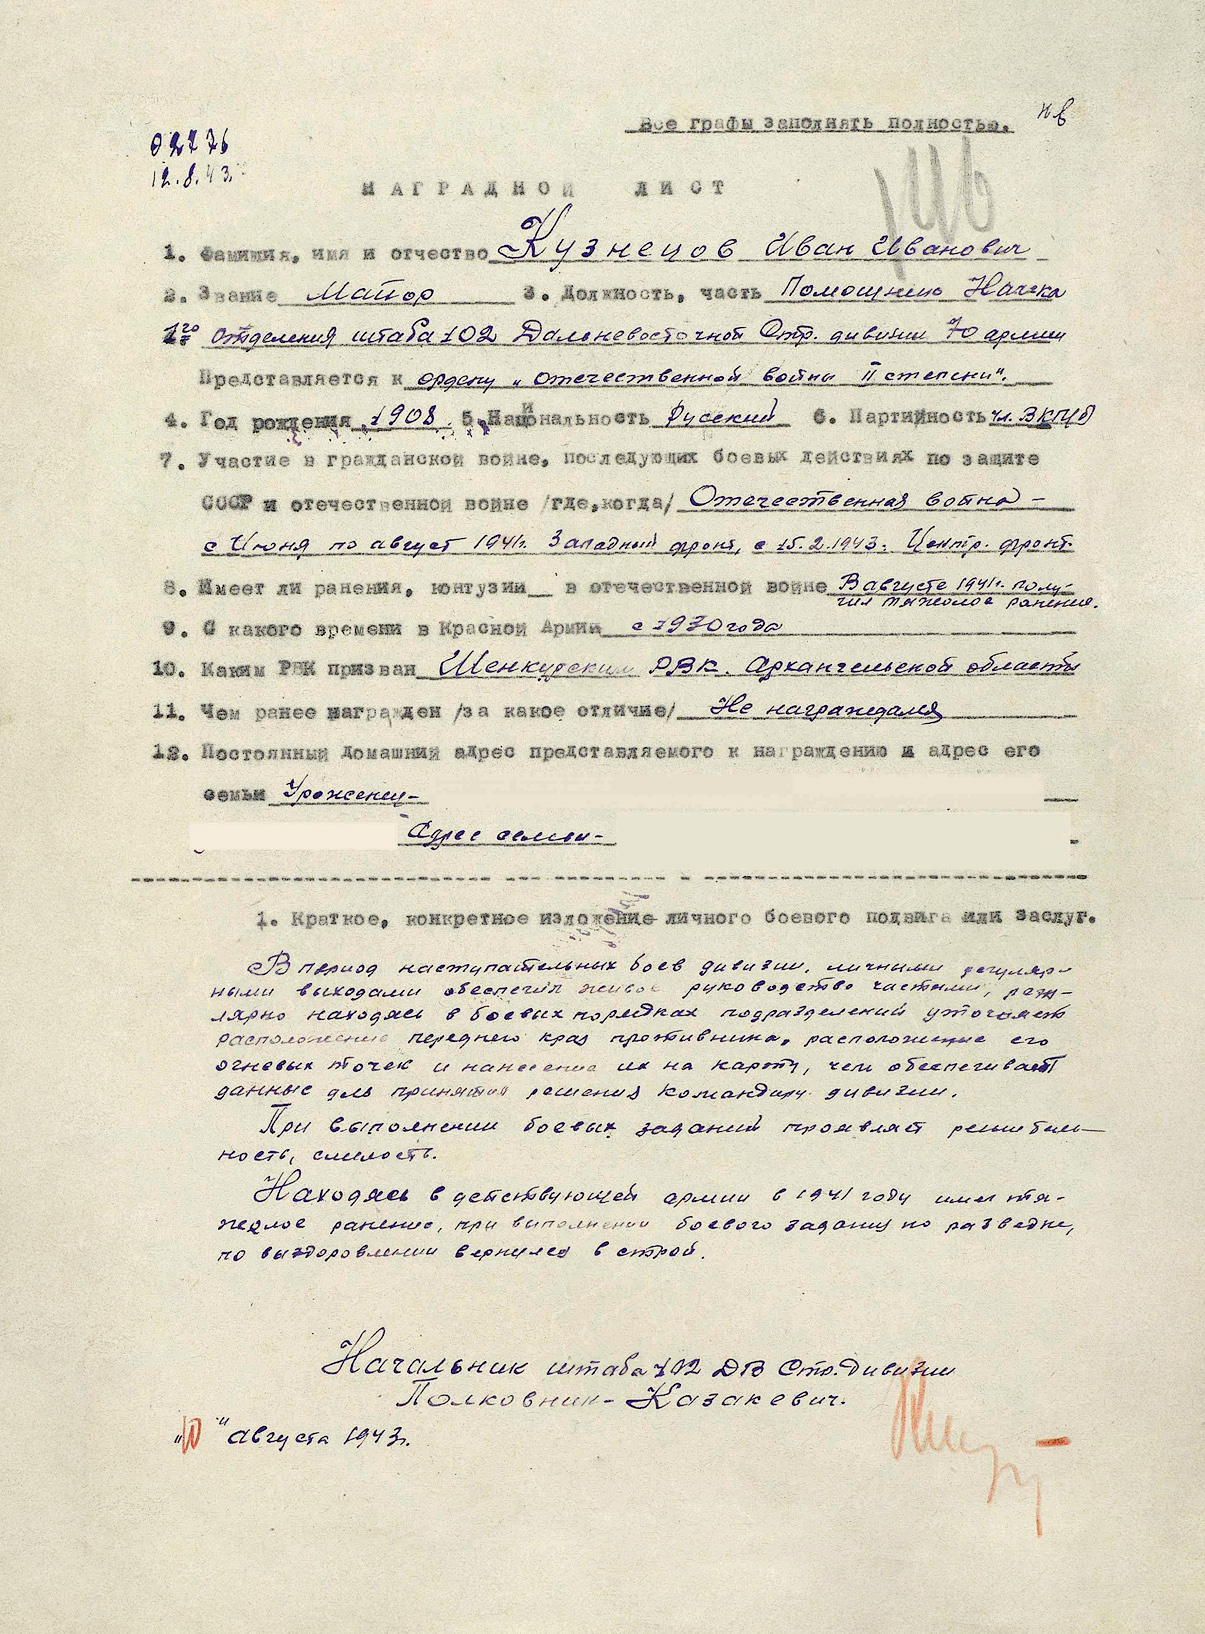 Все графы заполнять полностью.
02276
12.8.43.
НАГРАДНОЙ ЛИСТ
1. Фамилия, имя и отчество Кузнецов Иван Иванович
2. Звание Майор 3. Должность, часть Помощник Нач-ка
1го отделения штаба 102 Дальневосточной Стр. дивизии 70 армии
Представляется к ордену "Отечественной войны II степени".
4. Год рождения 1908 5. Национальность Русский 6. Партийность чл. ВКП(б)
7. Участие в гражданской войне, последующих боевых действиях по защите
СССР и отечественной войне /где, когда/ Отечественная война -
с Июня по август 1941г. Западный фронт, с 15.2.1943. Центр. фронт.
8. Имеет ли ранения, контузии в отечественной войне В августе 1941г. полу-
чил тяжелое ранение.
9. С какого времени в Красной Армии с 1930 года
10. Каким РВК призван Шенкурским РВК. Архангельской области
11. Чем ранее награжден /за какое отличие/ Не награждался
12. Постоянный домашний адрес представляемого к награждению и адрес его
семьи Уроженец-
Адрес семьи-
1. Краткое, конкретное изложение личного боевого подвига или заслуг.
В период наступательных боев дивизии, личными регуляр-
ными выходами обеспечил живое руководство частями, регу-
лярно находясь в боевых порядках подразделений уточняет
расположение переднего края противника, расположение его
огневых точек и нанесение их на карту, чем обеспечивает
данные для принятия решения командиру дивизии.
При выполнении боевых заданий проявляет решитель-
ность, смелость.
Находясь в действующей армии в 1941 году имел тя-
желое ранение, при выполнении боевого задания по разведке,
по выздоровлении вернулся в строй.
Начальник штаба 102 ДВ Стр. дивизии
Полковник - Казакевич.
"10" августа 1943г.